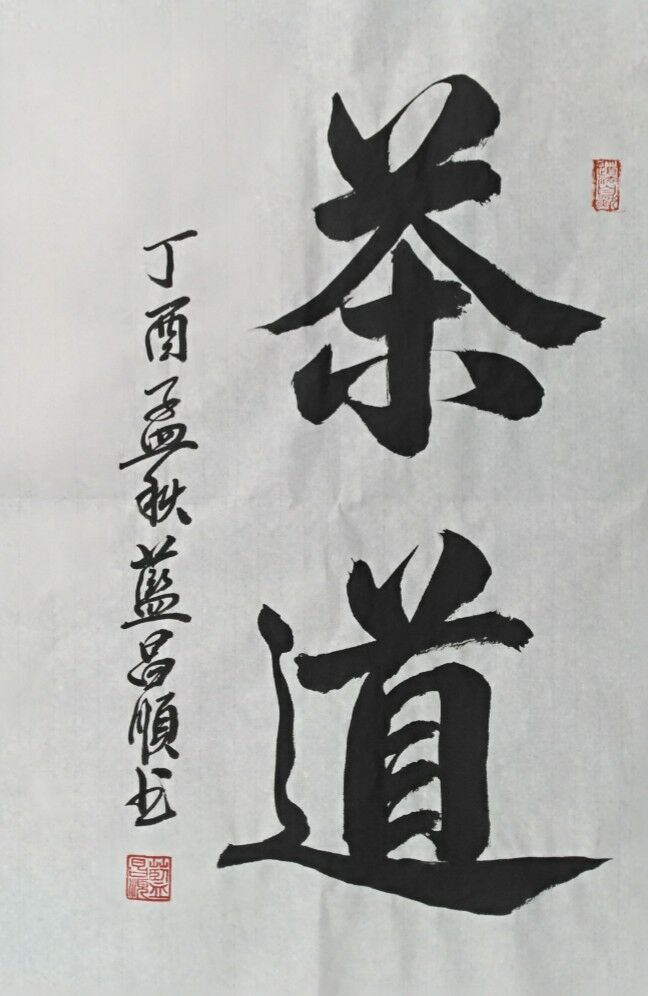 茶道
丁酉孟秋藍昌順书